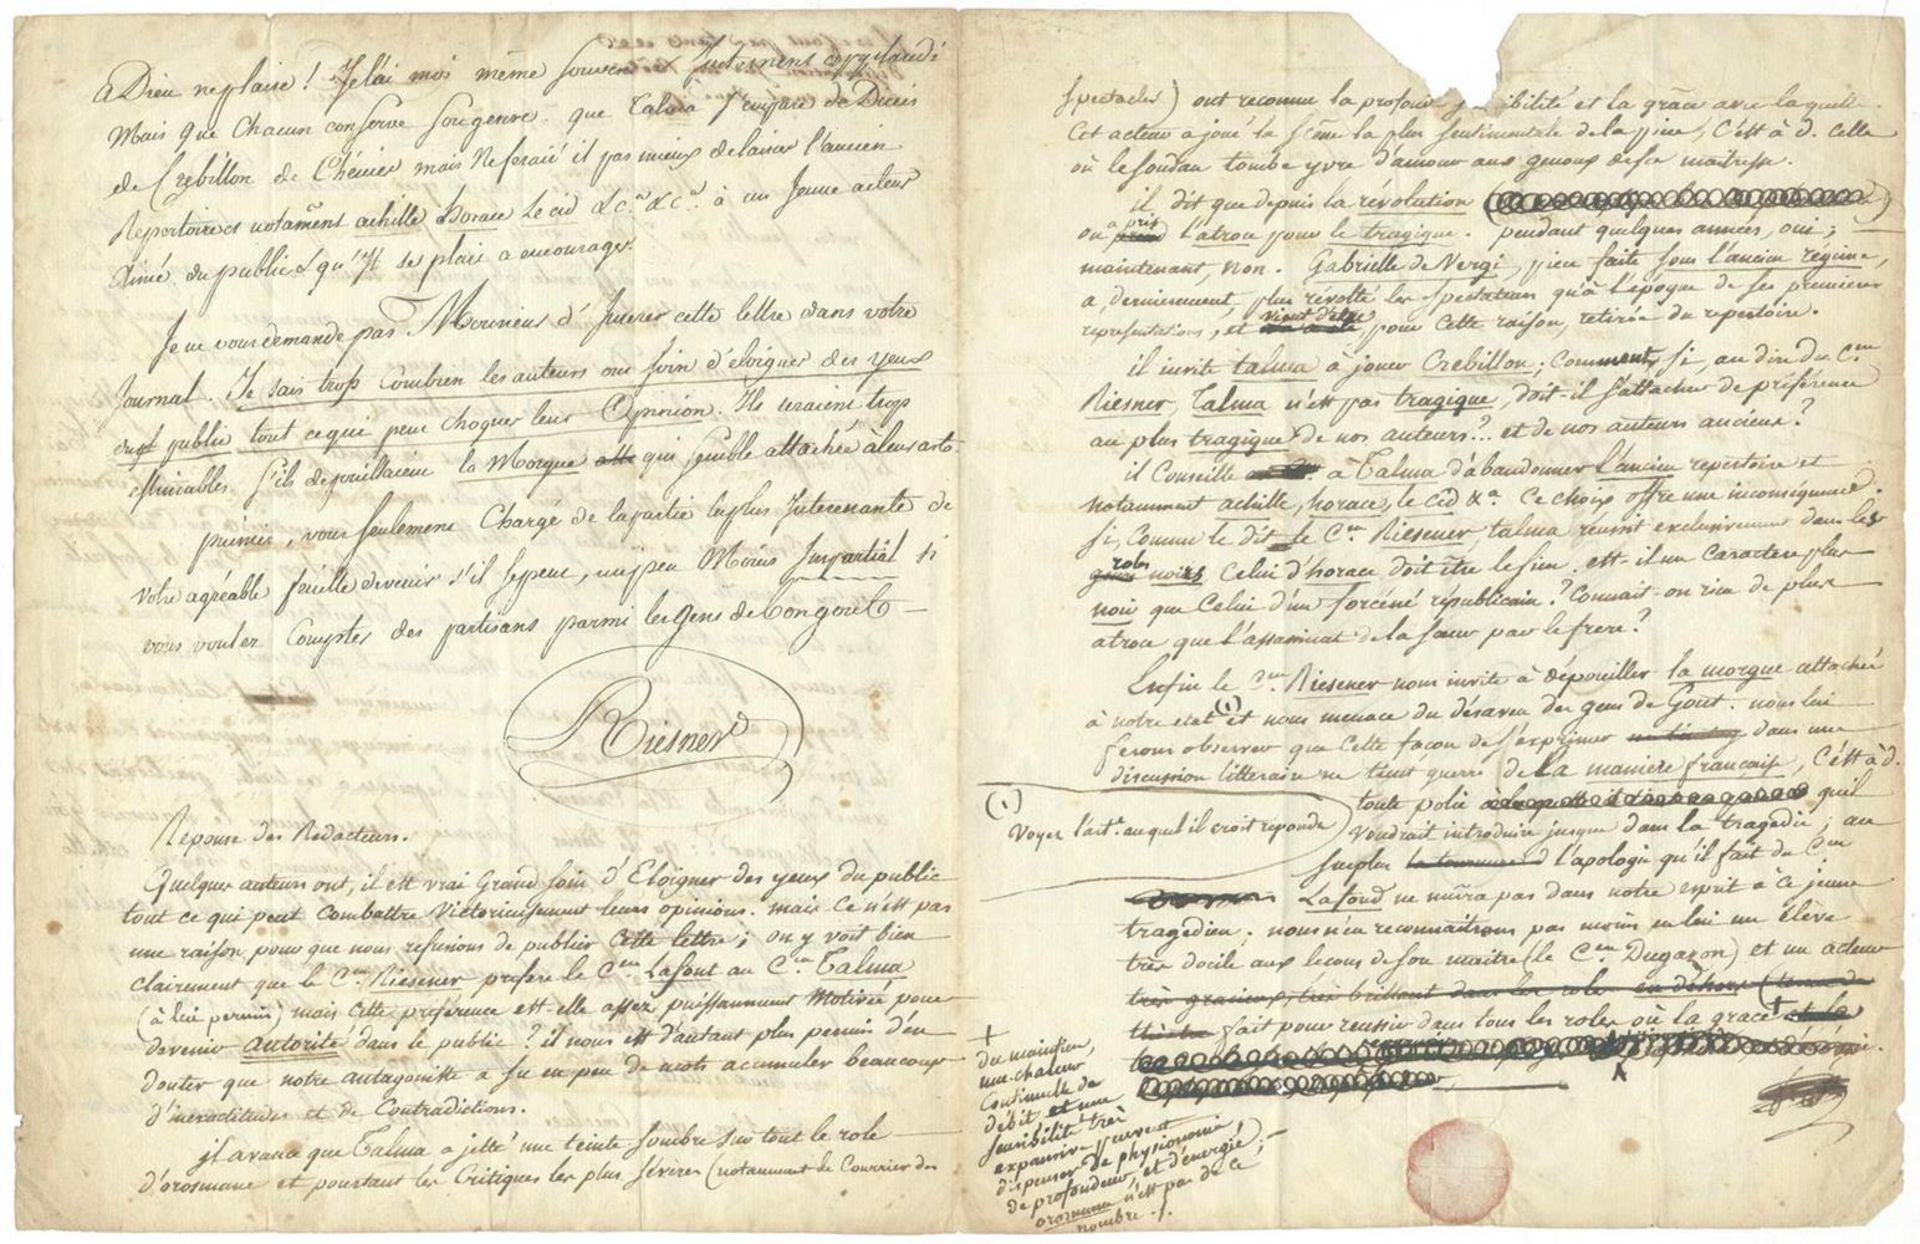 A Dieu ne plaise ! Je l'ai moi même souvent Justement applaudi
Mais que chacun conserve son genre. que Talma s'empare de Ducis
de Crébillon de Chénier mais Ne ferait il pas mieux de laisser l'ancien
Repertoire et notament achille horace le cid &c.a &c.a à un Jeune acteur
Aimé du public & qu'il se plait a encourager.
Je ne vous demande pas Monsieur d'Inserer cette lettre dans votre
Journal. Je sais trop combien les auteurs ont soin d'eloigner des yeux
du public tout ce qui peut choquer leur Opinion. Ils seraient trop
estimables s'ils depouillaient la Morgue qui semble attachée à leur art.
vous seulement Chargé de la partie la plus Interessante de
votre agréable feuille devenir s'il se peut, un peu Moins Impartial si
vous voulez Compter des partisans parmi les gens de bon gout —
Riesner
Reponse des Redacteurs.
Quelques auteurs ont, il est vrai Grand soin d'Eloigner des yeux du public
tout ce qui peut combattre Victorieusement leurs opinions. mais ce n'est pas
une raison pour que nous refusions de publier cette lettre ; on y voit bien
clairement que le C.en Riesener prefere le C.en Lafont au C.en Talma
(à lui permis) mais cette préférence est-elle assez puissamment Motivée pour
devenir autorité dans le public ? il nous est d'autant plus permis d'en
douter que notre antagoniste a su en peu de mots accumuler beaucoup
d'inexactitudes et de Contradictions.
il avance que Talma a jetté une teinte sombre sur tout le role
d'orosmane et pourtant les Critiques les plus sévères (notamment le Courrier des
spectacles) ont reconnu la profonde sensibilité et la grâce avec laquelle
Cet acteur a joué la scène la plus sentimentale de la piece, c'est à d. celle
où le soudan tombe yvre d'amour aux genoux de sa maitresse.
il dit que depuis la révolution
on a pris l'atroce pour le tragique. pendant quelques années, oui ;
maintenant, non. Gabrielle de Vergi, piece faite sous l'ancien régime,
a, dernierement, plus révolté les spectateurs qu'à l'époque de ses premieres
representations, et vient d'etre, pour cette raison, retirée du repertoire.
il invite talma à jouer Crebillon ; Comment, si, au dire du C.en
Riesner, Talma n'est pas tragique, doit-il s'attacher de préférence
au plus tragique de nos auteurs ?.. et de nos auteurs anciens ?
il Conseille à Talma d'abandonner l'ancien repertoire et
notamment achille, horace, le Cid &a. Ce choix offre une inconséquence.
si, comme le dit le C.en Riesener, talma réussit exclusivement dans les
roles noirs, celui d'horace doit être le sien. est-il un caractere plus
noir que celui d'un forcéné républicain ? Connait-on rien de plus
atroce que l'assassinat de la sœur par le frere ?
Enfin le C.en Riesener nous invite à dépouiller la morgue attachée
à notre etat (1) et nous menace du désaveu des gens de Gout. nous lui
ferons observer que cette façon de s'exprimer dans une
discussion litteraire ne tient guerre de la maniere française, c'est à d.
toute polie qu'il
(1)
Voyez l'art.e auquel il croit repondre
voudrait introduire jusque dans la tragedie ; au
surplus l'apologie qu'il fait du C.en
Lafond ne nuira pas dans notre esprit à ce jeune
tragedien ; nous n'en reconnaitrons pas moins en lui un élève
très docile aux leçons de son maitre (le C.en Dugazon) et un acteur
très gracieux, très brillant dans les roles en déhors
fait pour reussir dans tous les roles où la grace + et la
+
du maintien,
une chaleur
continuelle de
débit, et une
sensibilité très
expansive peuvent
dispenser de physionomie,
de profondeur, et d'énergie ; —
orosmane n'est pas de ce
nombre ./.